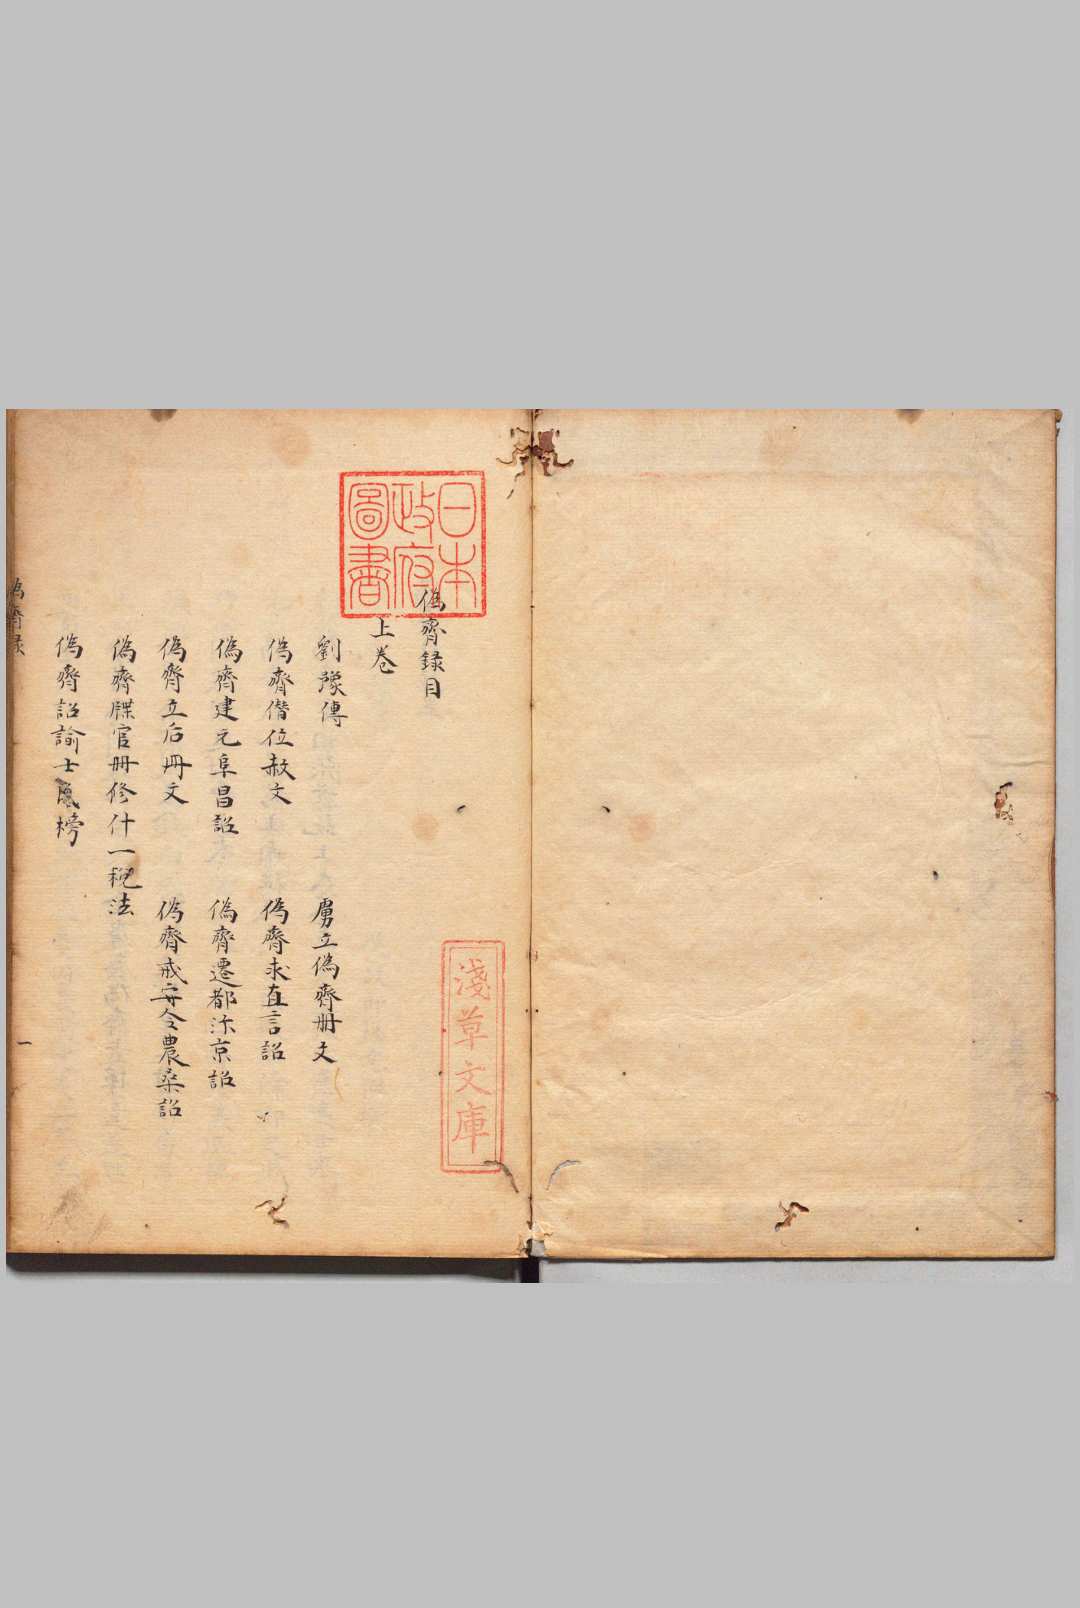 日本
政府
圖書
偽齊録目
上卷
淺草文庫
劉豫傳
虜立偽齊册文
偽齊僭位赦文
偽齊求直言詔
偽齊建元阜昌詔
偽齊遷都汴京詔
偽齊立后冊文
偽齊戒守令農桑詔
偽齊牒官冊修什一稅法
偽齊詔諭士民榜
偽齊録
一